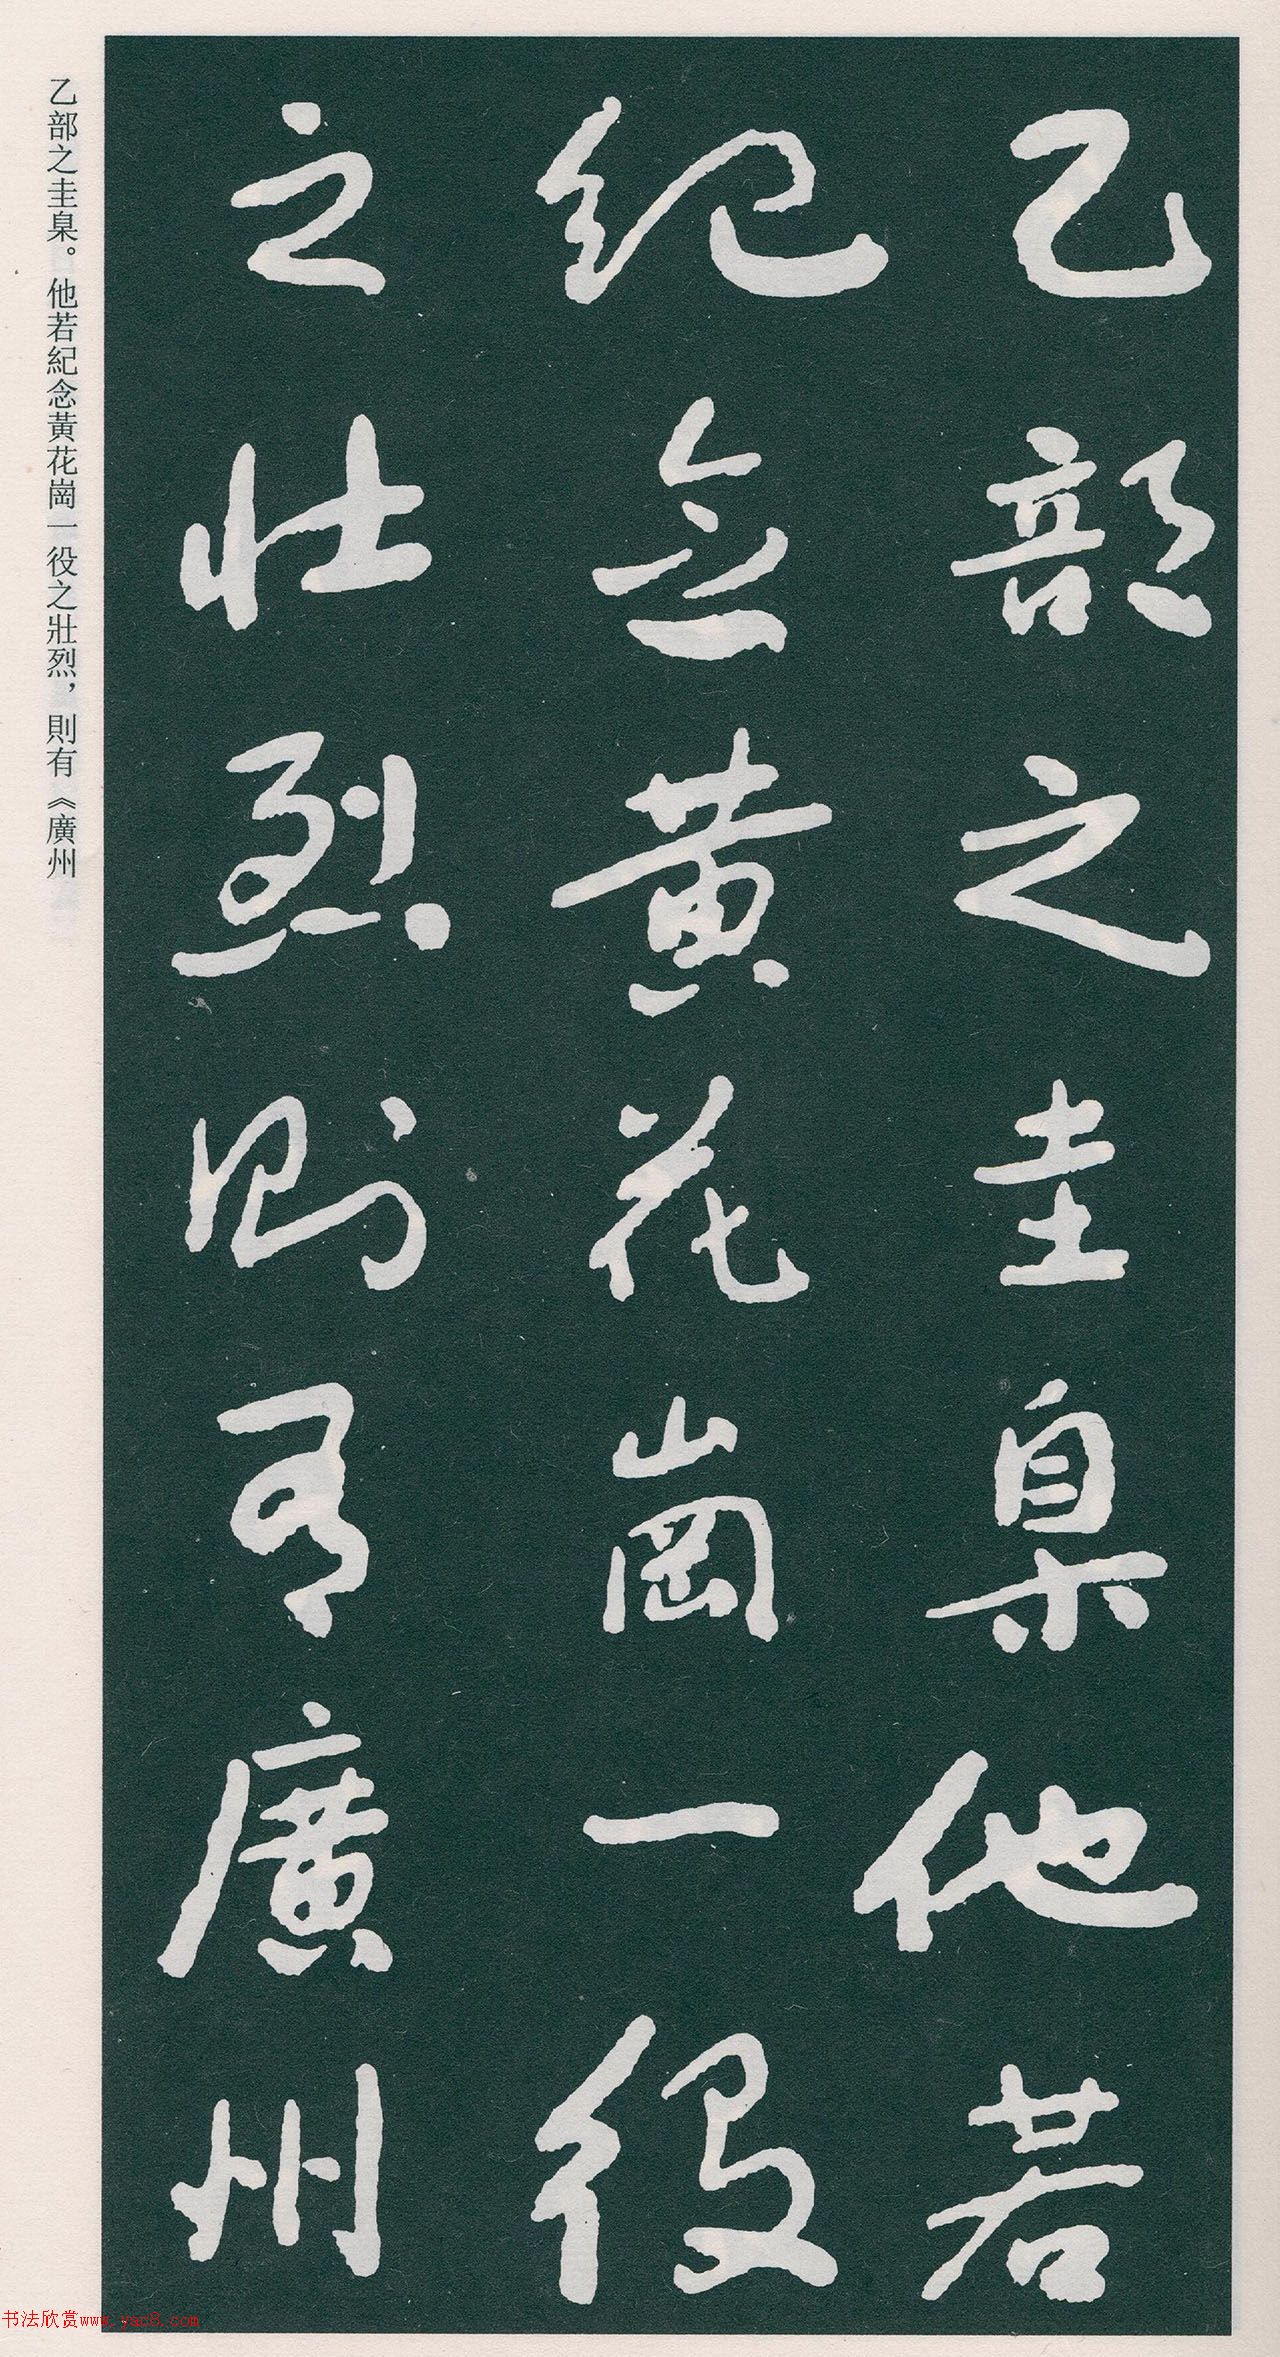 乙部之圭臬他若
紀念黃花崗一役
之壯烈則有廣州
乙部之圭臬。他若紀念黃花崗一役之壯烈，則有《廣州
书法欣赏www.yac8.com